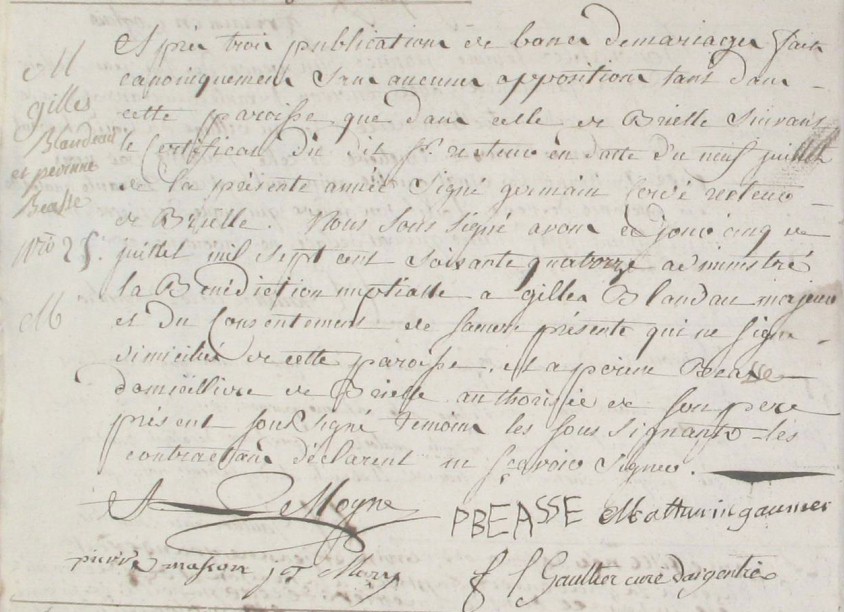 M
gilles
Blandeau
et perinne
Beasse
nro 25.
M
Apres trois publications de bancs de mariages faite
canoniquement sans aucunne opposition tant dans
cette paroisse que dans celle de Brielle suivant
le Certificat du dit Sr recteur en datte du neuf juillet
de la présente année signé germain recteur
de Brielle. Nous sous signé avons ce jour cinq
juillet mil sept cent soixante quatorze administré
la Bénédiction nuptialle a gilles Blandau majeur
et du Consentement de sa mere présente qui ne signe
domicilié de cette paroisse, et a perinne Beasse
domicilliée de Brielle authorisée de son pere
présent sousigné temoins les sous signants les
contractans déclarent ne sçavoir signer.
Le Moyne PBEASSE Mathurin gaumer
pierre masson
f l Gaultier curé dargentré